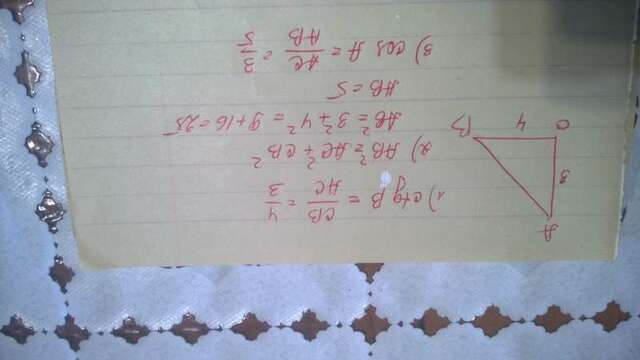 A
3
C
4
B
1) ctg B = CB/AC = 4/3
2) AB² = AC² + CB²
AB² = 3² + 4² = 9 + 16 = 25
AB = 5
3) cos A = AC/AB = 3/5